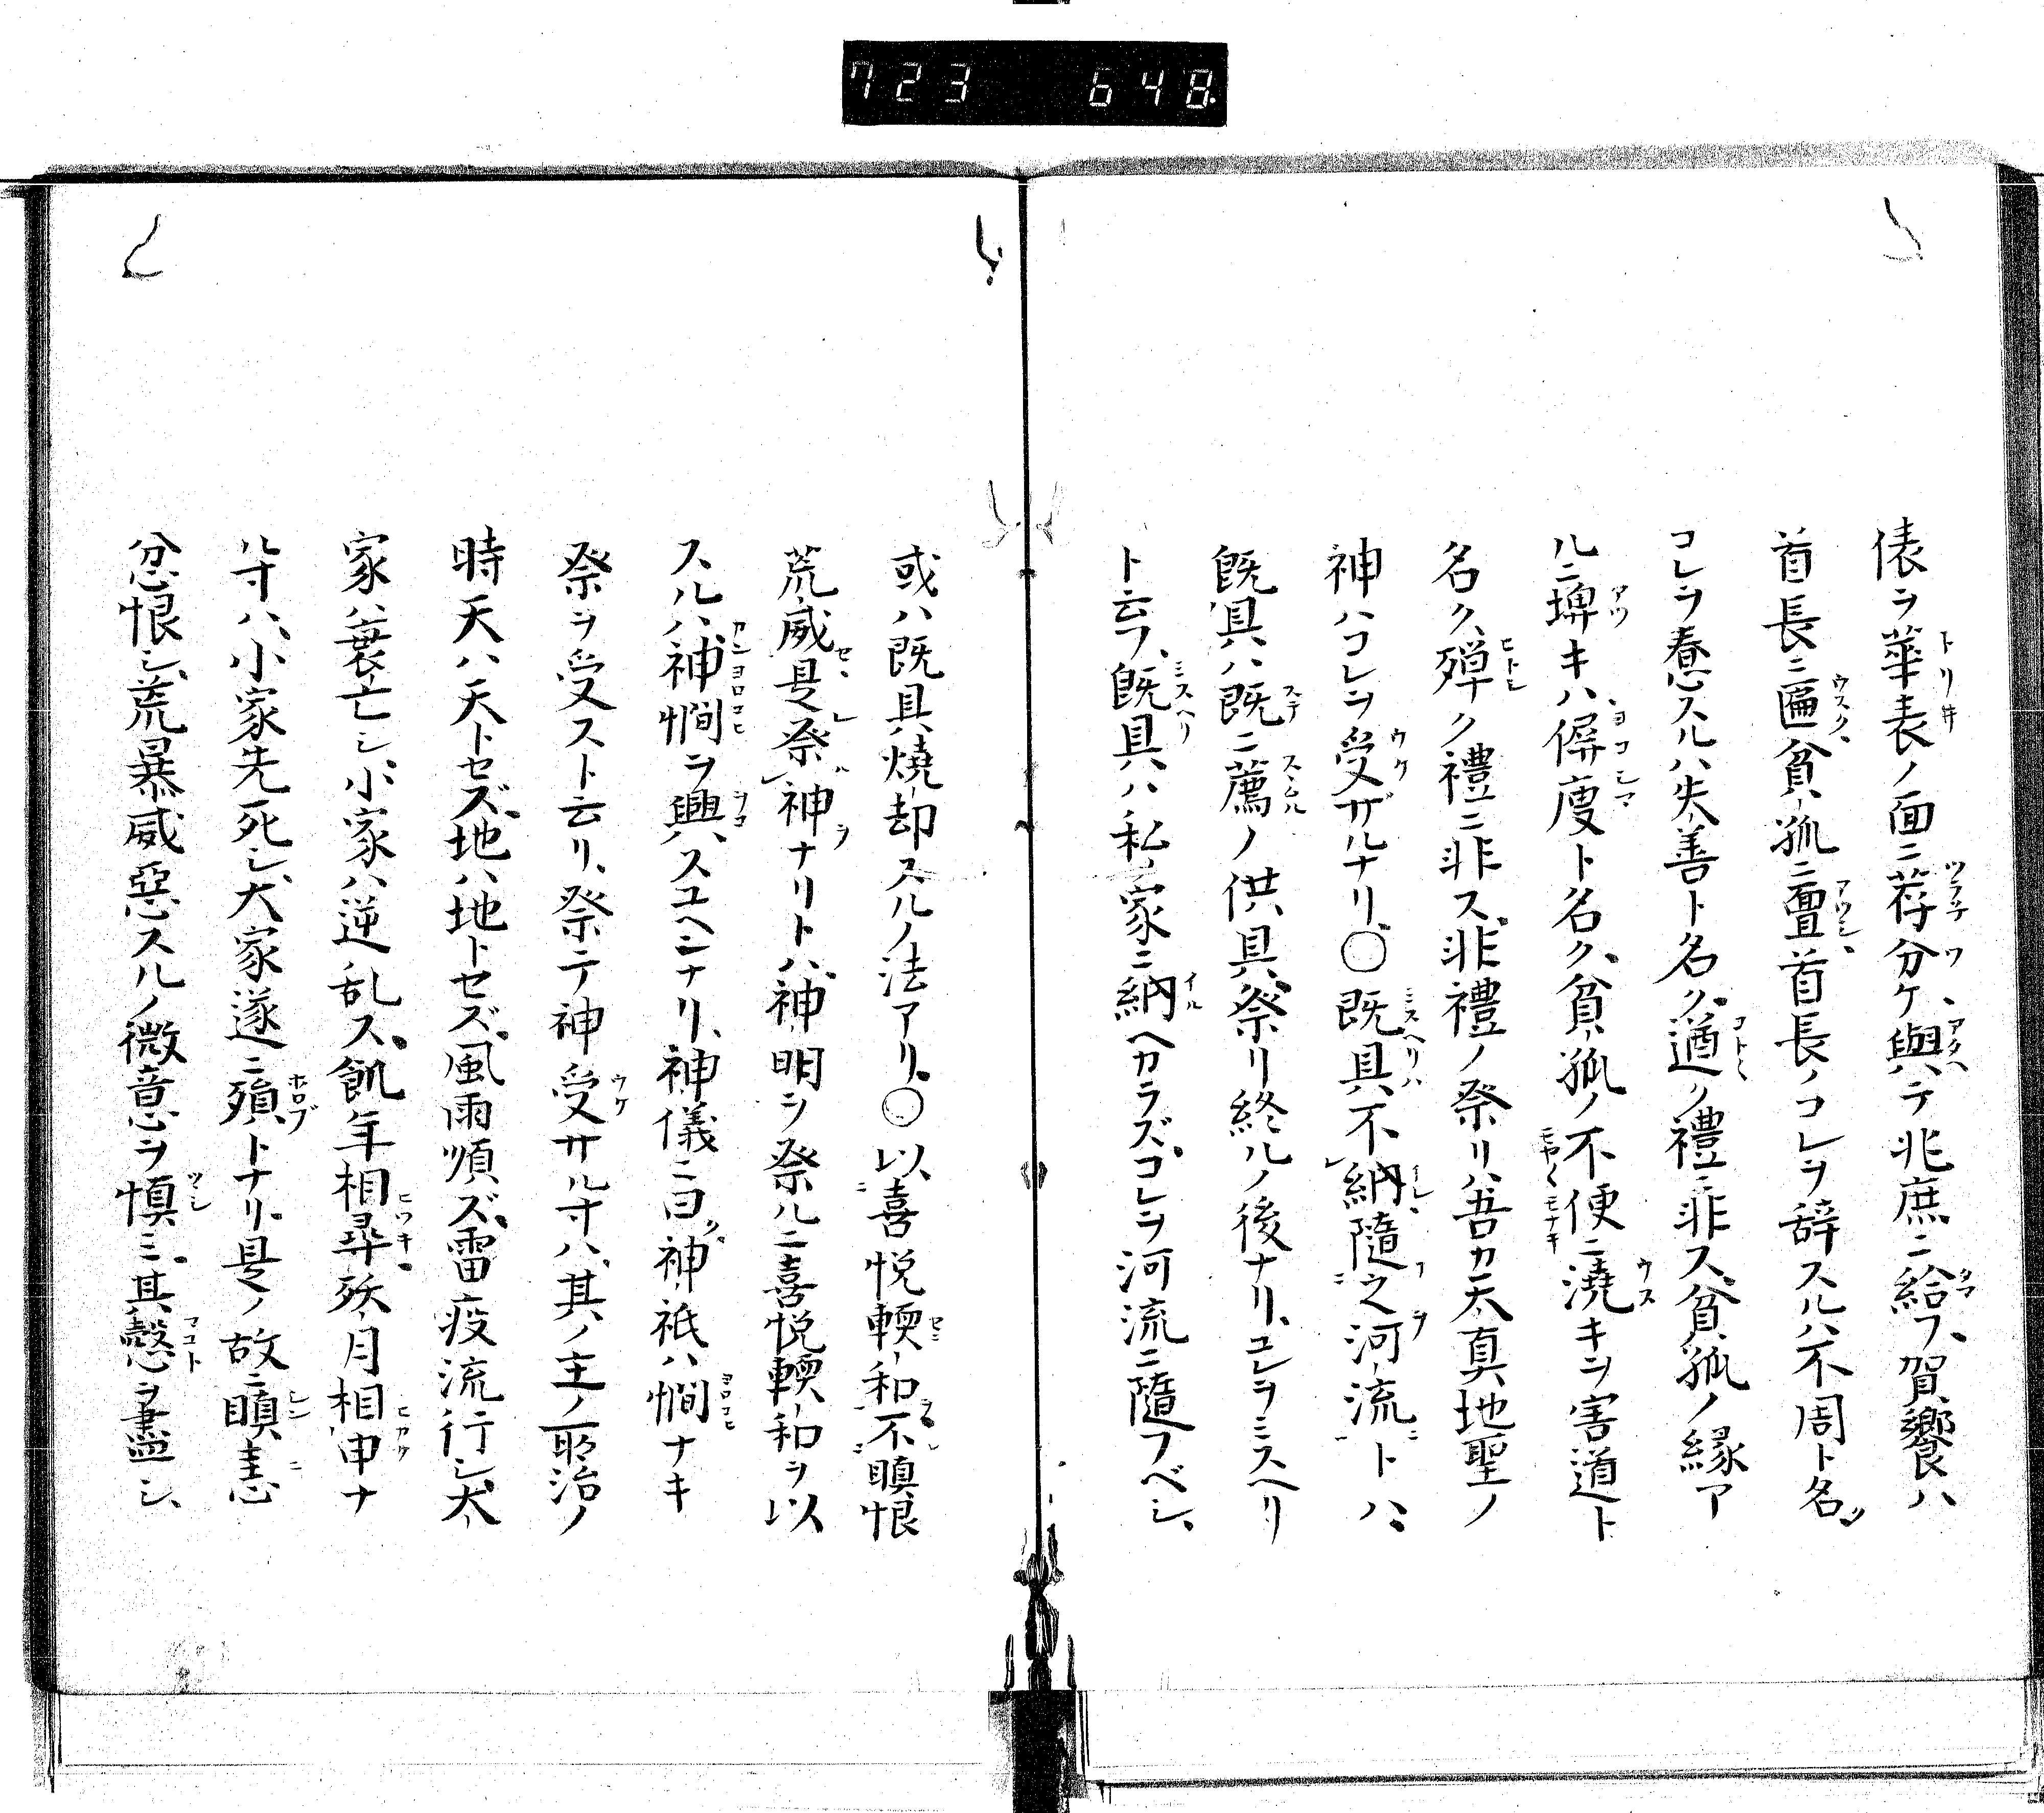 723 648
俵ヲ華表ノ面ニ荐分ケ與テ兆庶ニ給フ、賀饗ハ
首長ニ匾貧孤ニ亶首長ノコレヲ辞スルハ不周ト名ツ
コレヲ惷スルハ失善ト名ク、遒ク禮ニ非ス、貧孤ノ縁ア
ルニ埤キハ僻廋ト名ク、貧孤ノ不便ニ澆キヲ害道ト
名ク、殫ク禮ニ非ス、非禮ノ祭リハ吾カ天真地聖ノ
神ハコレヲ受ザルナリ、〇既具不納隨之河流トハ、
既具ハ既ニ薦ノ供具、祭リ終ルノ後ナリ、コレヲミスヘリ
ト云フ、既具ハ私ノ家ニ納ヘカラズ、コレヲ河流ニ隨フベシ、
或ハ既具焼却スルノ法アリ、〇以喜悦輭和不瞋恨
荒威是祭神ナリトハ、神明ヲ祭ルニ喜悦輭和ヲ以
スルハ、神憪ヲ興スユヘンナリ、神儀ニ曰神祇ハ憪ナキ
祭ヲ受ストエリ、祭テ神受サル寸ハ、其ノ主ノ所治ノ
時天ハ天トセズ、地ハ地トセズ、風雨順ズ、雷疫流行シ、大
家ハ衰亡シ、小家ハ逆乱ス、飢年相尋殀月相申ナ
ル寸ハ、小家先死シ、大家遂ニ殞トナリ、是ノ故ニ瞋恚
忿恨シ、荒暴威惡スルノ微意ヲ慎ミ、其慤ヲ盡シ、